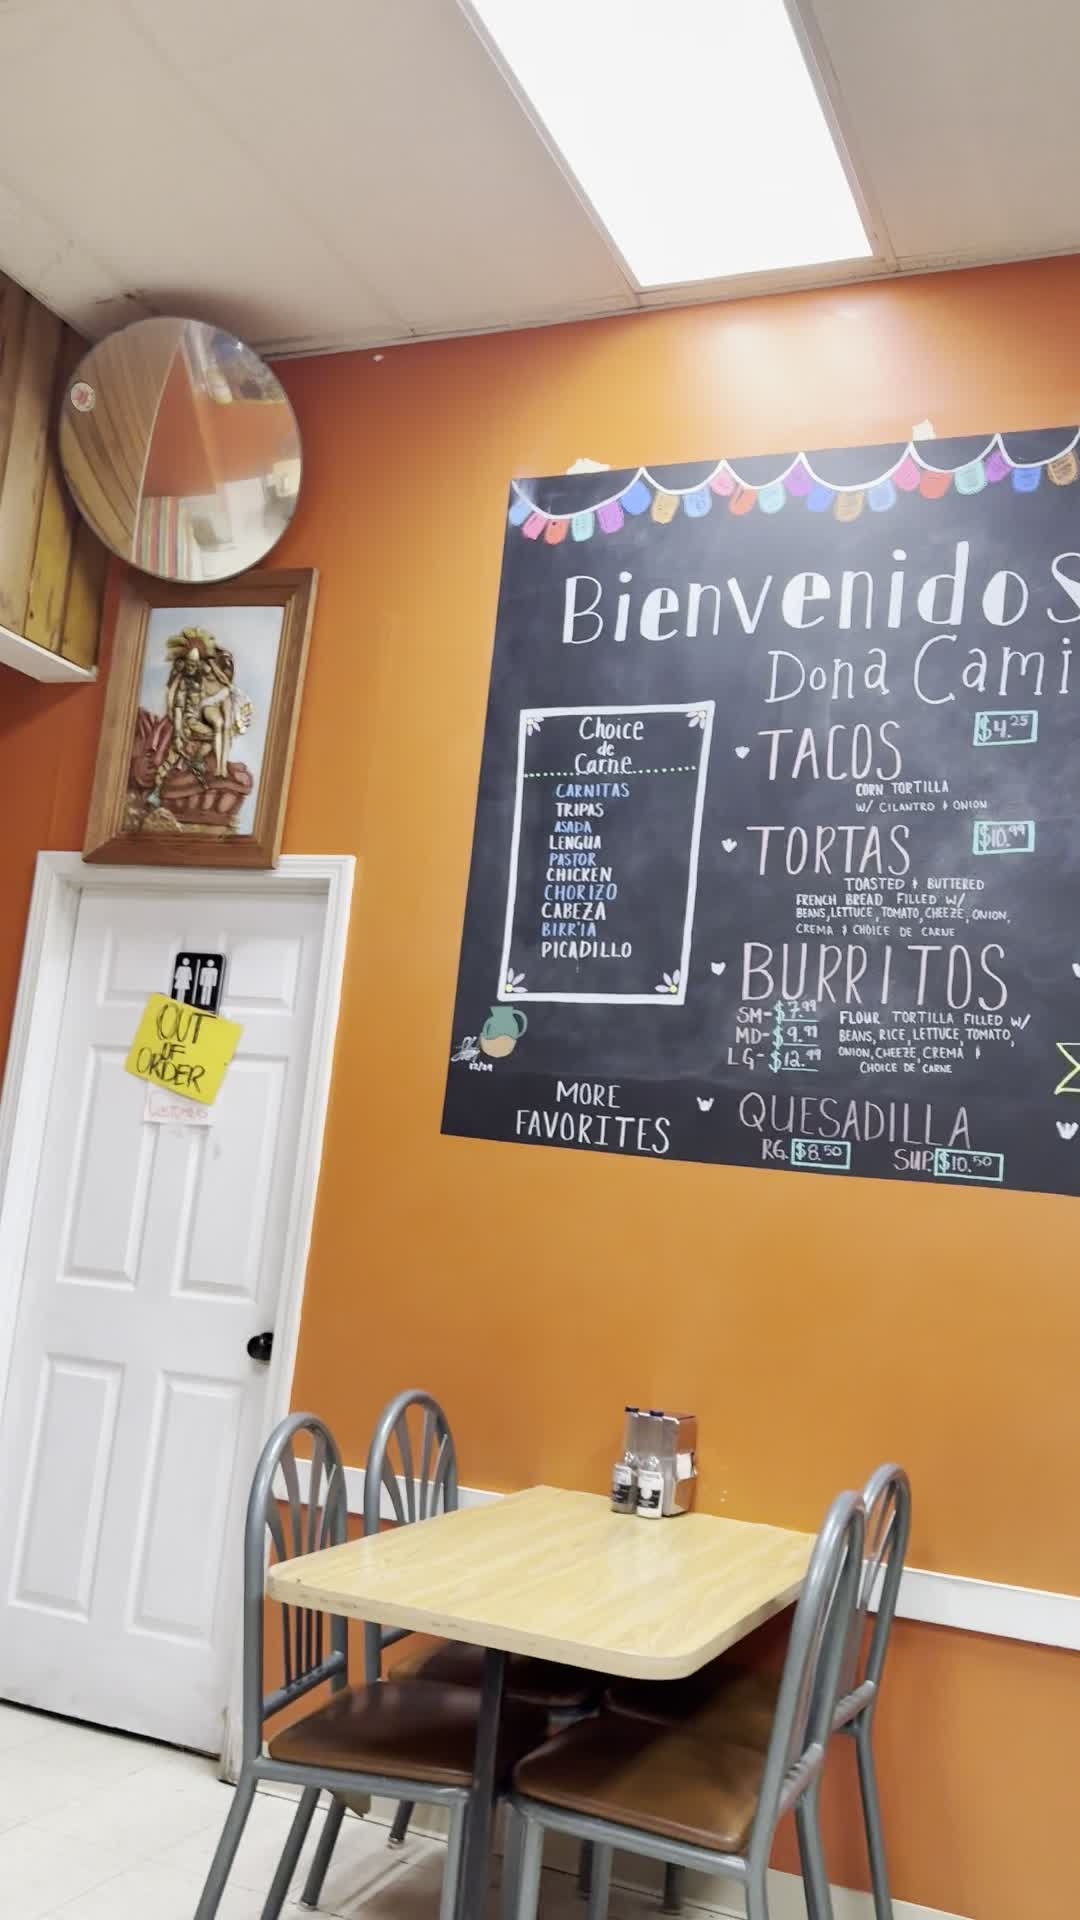 Bienvenidos
Dona Cami
Choice
de
Carne
CARNITAS
TRIPAS
ASADA
LENGUA
PASTOR
CHICKEN
CHORIZO
CABEZA
BIRRIA
PICADILLO
TACOS $4.25
CORN TORTILLA
W/ CILANTRO & ONION
TORTAS $10.99
TOASTED & BUTTERED
FRENCH BREAD FILLED W/
BEANS, LETTUCE, TOMATO, CHEEZE, ONION,
CREMA & CHOICE DE CARNE
BURRITOS
SM-$7.99
MD-$9.99
LG-$12.99
FLOUR TORTILLA FILLED W/
BEANS, RICE, LETTUCE, TOMATO,
ONION, CHEEZE, CREMA &
CHOICE DE CARNE
MORE
FAVORITES
QUESADILLA
RG. $8.50 SUP. $10.50
OUT
OF
ORDER
CUSTOMERS